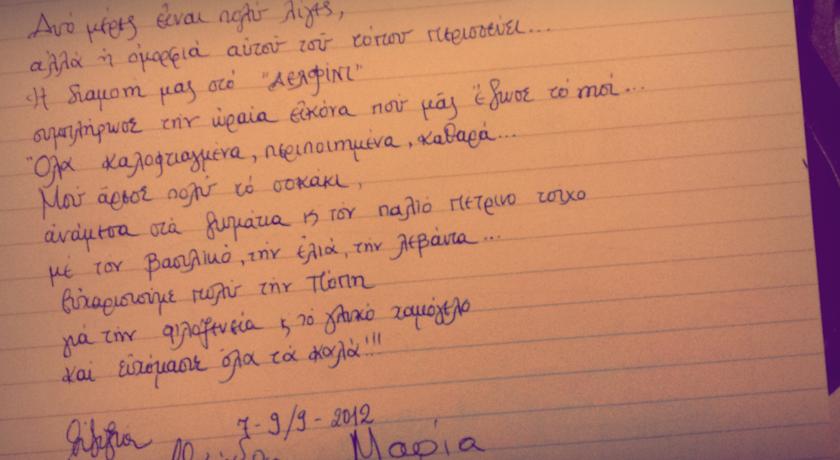 Δυό μέρες είναι πολύ λίγες,
αλλά ἡ ὀμορφιά αὐτοῦ τοῦ τόπου περισσεύει...
Ἡ διαμονή μας στό "ΔΕΛΦΙΝΙ"
συμπλήρωσε τήν ὡραία εἰκόνα πού μᾶς ἔδωσε τό νησί...
Ὅλα καλοφτιαγμένα, περιποιημένα, καθαρά...
Μοῦ ἄρεσε πολύ τό σοκάκι,
ἀνάμεσα στά δωμάτια ϗ τόν παλιό πέτρινο τοίχο
μέ τόν βασιλικό, τήν ἐλιά, τήν λεβάντα...
Εὐχαριστοῦμε πολύ τήν Πόπη
γιά τήν φιλοξενεία ϗ τό γλυκό χαμόγελο
καί εὐχόμαστε ὅλα τά καλά!!!
7-9/9-2012
Μαρία